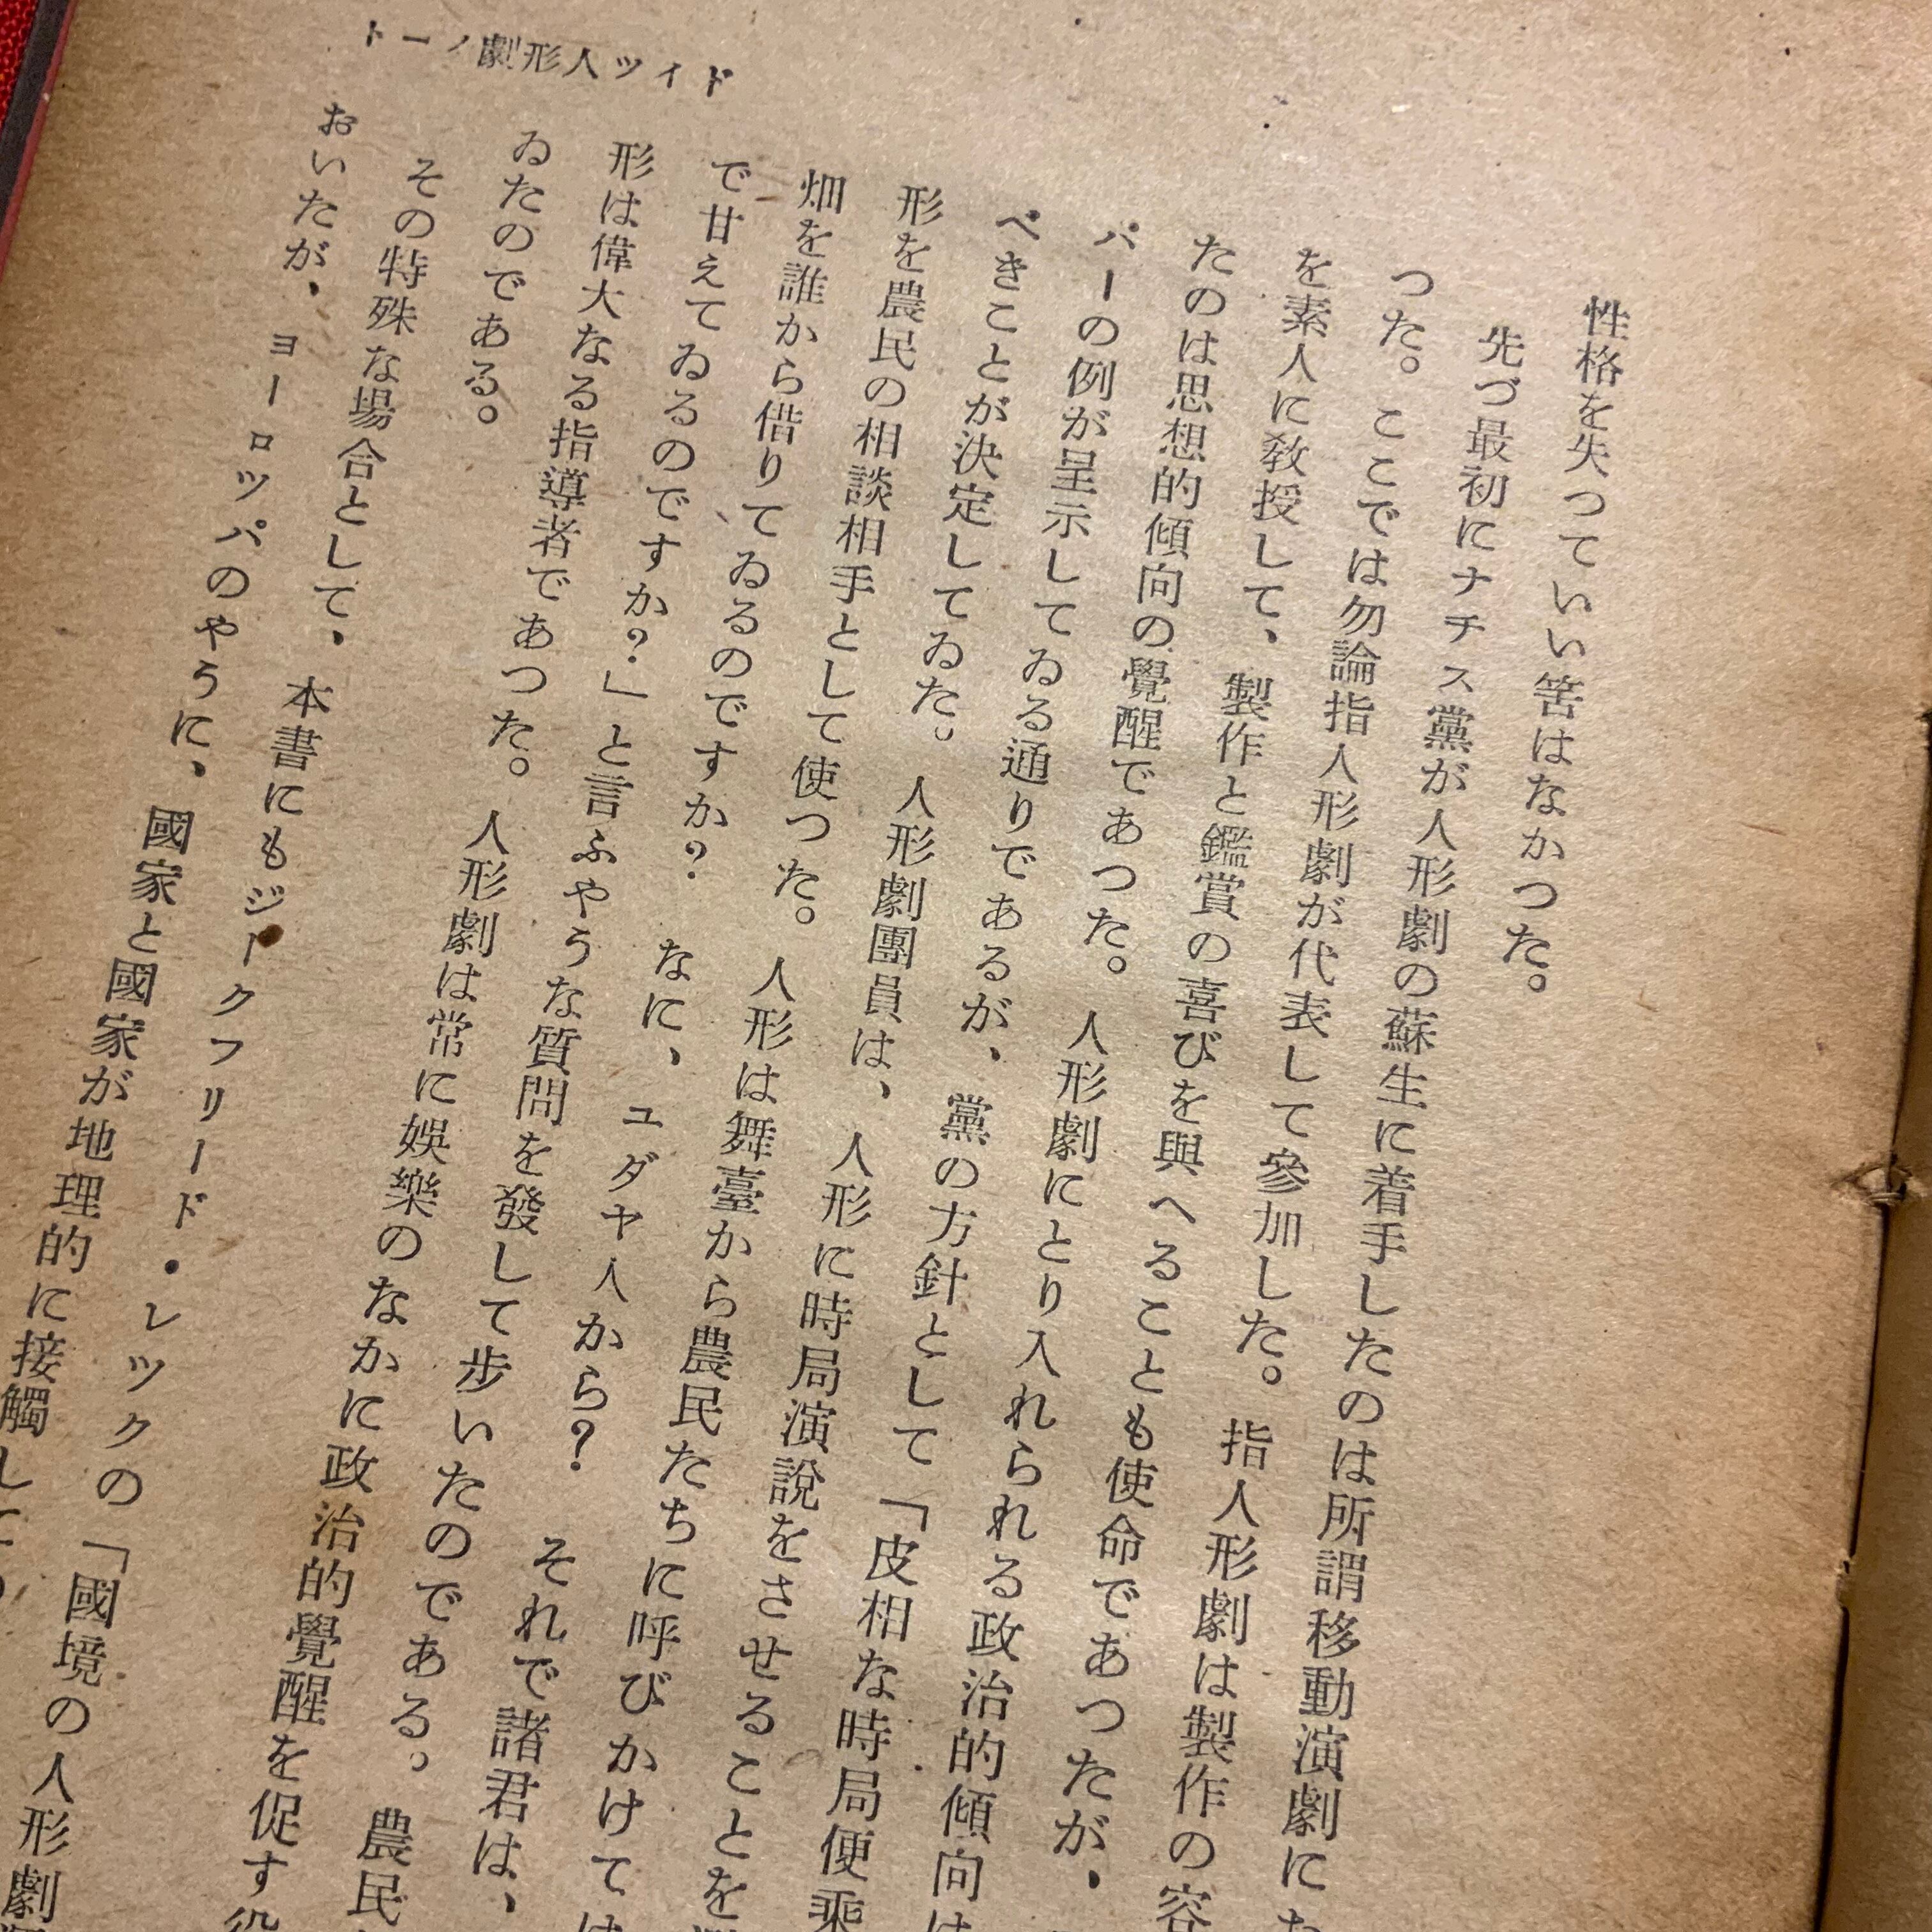 ドイツ人形劇ノート
性格を失つていい筈はなかつた。
先づ最初にナチス黨が人形劇の蘇生に着手したのは所謂移動演劇に
つた。ここでは勿論指人形劇が代表して參加した。指人形劇は製作の容
を素人に敎授して、製作と鑑賞の喜びを與へることも使命であつたが、
たのは思想的傾向の覺醒であつた。人形劇にとり入れられる政治的傾向は
パーの例が呈示してゐる通りであるが、黨の方針として「皮相な時局便乘
べきことが決定してゐた。人形劇團員は、人形に時局演說をさせることを
形を農民の相談相手として使つた。人形は舞臺から農民たちに呼びかけては
畑を誰から借りてゐるのですか？なに、ユダヤ人から？それで諸君は、
で甘えてゐるのですか？」と言ふやうな質問を發して歩いたのである。農民
形は偉大なる指導者であつた。人形劇は常に娛樂のなかに政治的覺醒を促す役
ゐたのである。
その特殊な場合として、本書にもジークフリード・レツクの「國境の人形劇
おいたが、ヨーロツパのやうに、國家と國家が地理的に接觸して